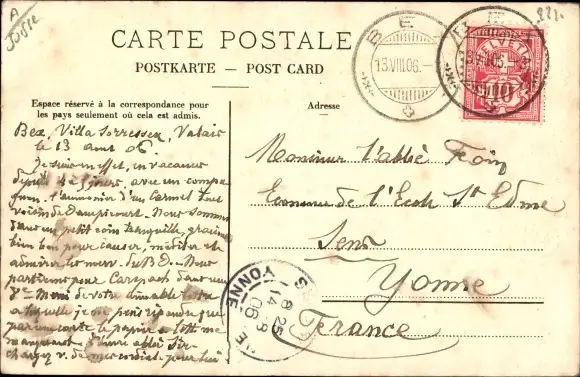 A
Suisse
221.
CARTE POSTALE
POSTKARTE — POST CARD
Espace réservé à la correspondance pour
les pays seulement où cela est admis.
Adresse
BEX
13.VIII.06.
BEX
13.VIII.06.
HELVETIA
10
Bex, Villa Sorressex, Valais
le 13 aout 06.
Je suis en effet, en vacances
depuis jours, avec un compa
gnon. l'aumonier d'un Carmel tout
voisin de Dampicourt. Nous sommes
dans un petit coin tranquille, gracieux
bien bon pour causer, méditer et
admirer les merv. du BD. Nous
partirons pour dans une
8e Merci de votre aimable lettre
a laquelle je ne puis répondre que
par une carte le papier a lettre me
manquant.
v. de mes cordiat. pour
Monsieur l'abbé Foin
Econome de l'Ecole St Edme
Sens
Yonne
France
YONNE
8 25
14 8
06